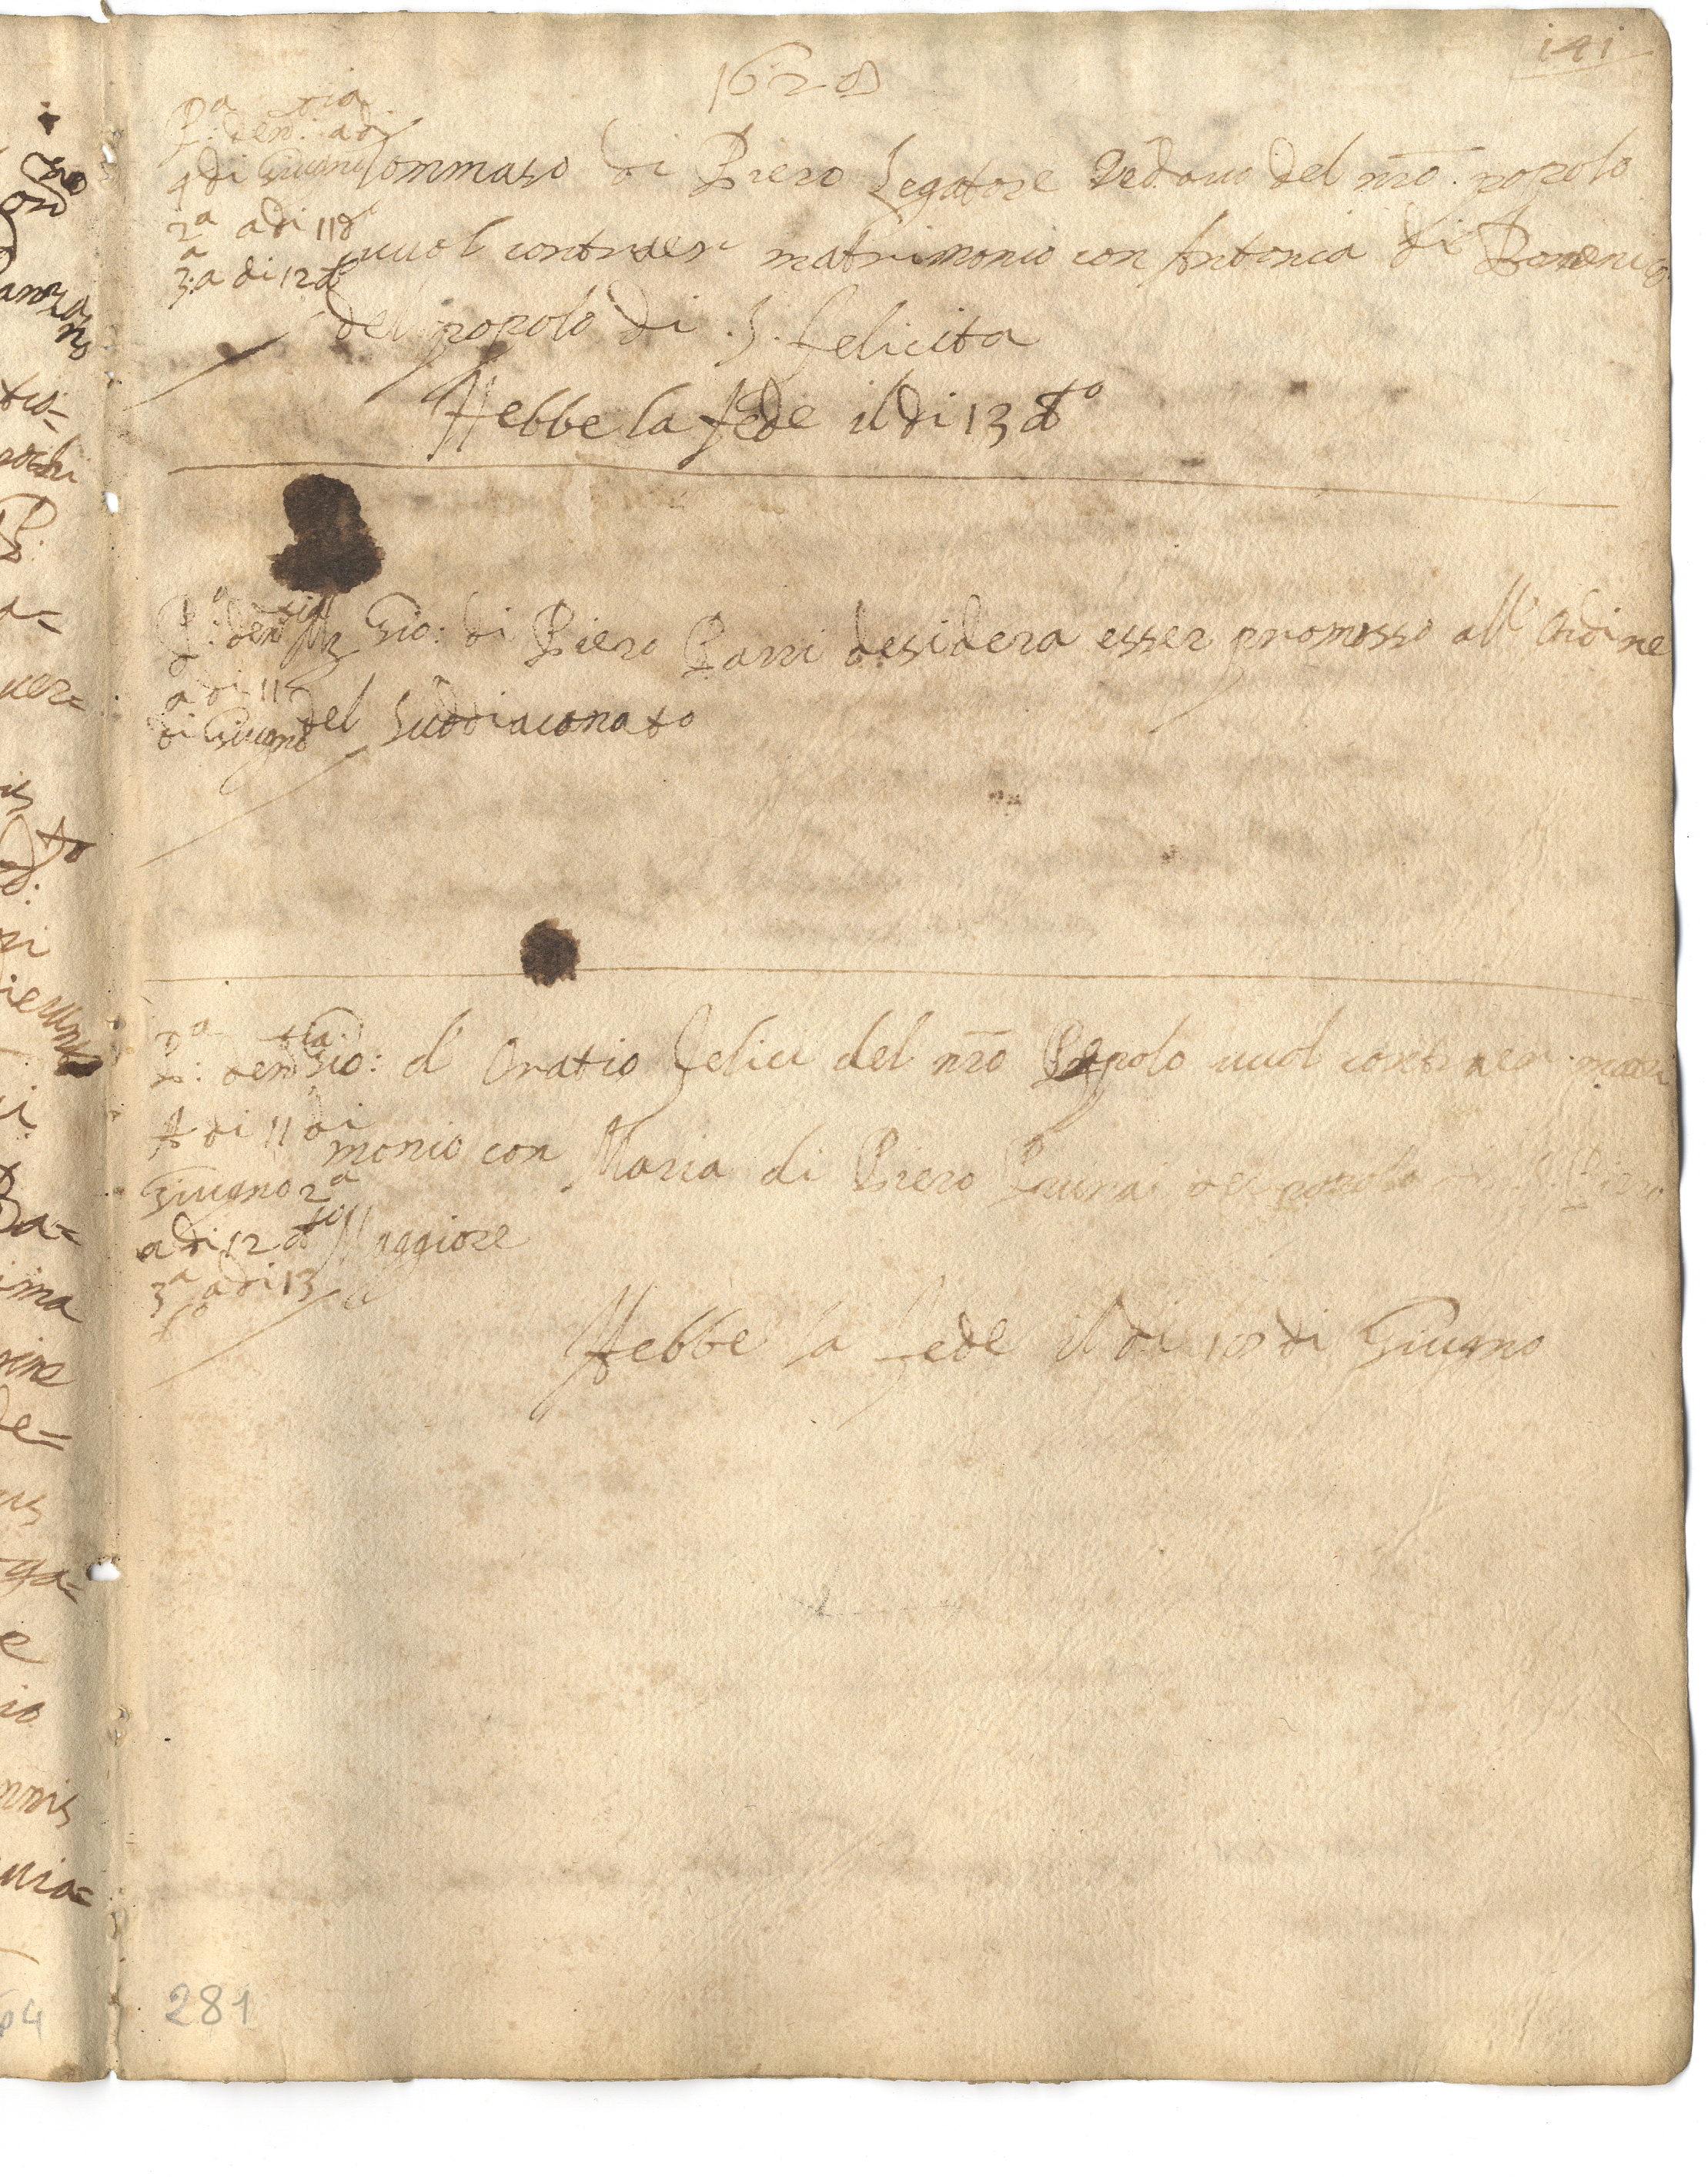 141
1628
P.a den:tia adi
4 di Giugno
2a adi 11 d
3.a adi 12 dto
Tommaso di Piero Legatore Vedovo del nro. popolo
vuol contraer matrimonio con Antonia di
del popolo di .S. felicita
Hebbe la fede il di 13 dto
P.a den:tia
adi 11
di Giugno
Gio: di Piero Parri desidera esser promosso all' Ordine
del Suddiaconato
P.a den:tia
A di 11 di
Giugno 2a
adi 12 dto
3a adi 13
dto
Gio: d' Oratio felici del nro Popolo vuol contraer matri
monio con Maria di Piero del popolo di S. Piero
Maggiore
Hebbe la fede il di 18 di Giugno
281